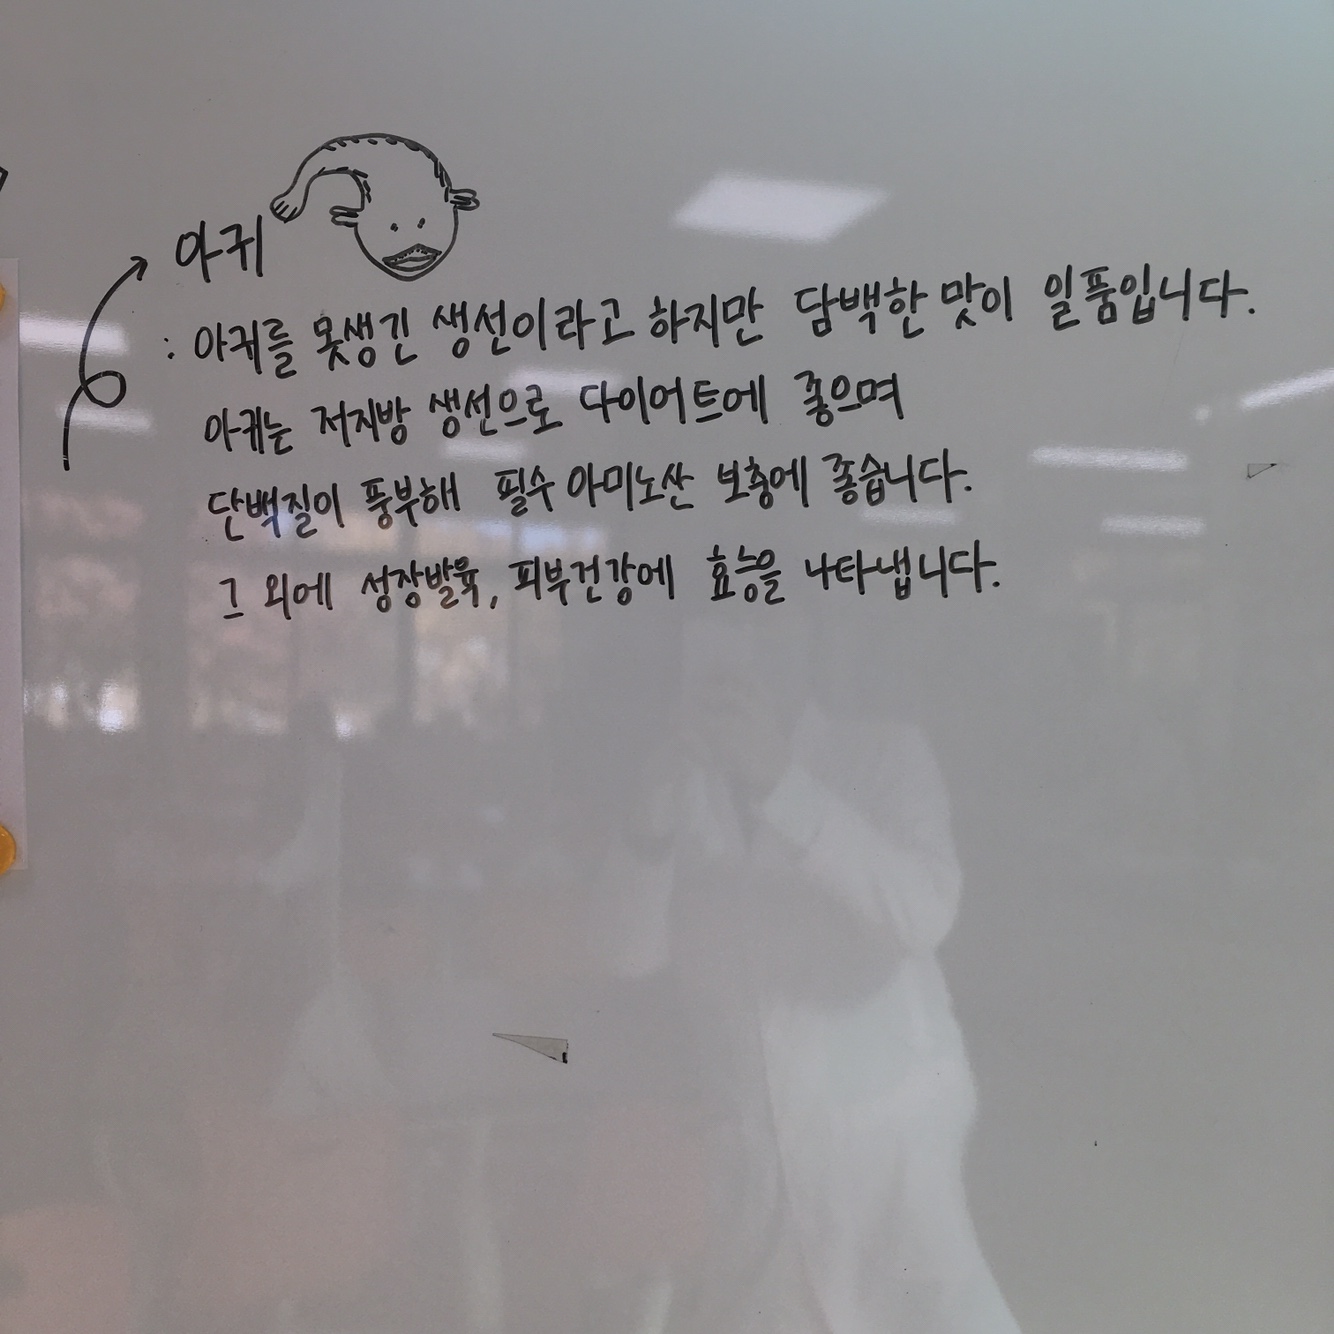 아귀
: 아귀를 못생긴 생선이라고 하지만 담백한 맛이 일품입니다.
아귀는 저지방 생선으로 다이어트에 좋으며
단백질이 풍부해 필수 아미노산 보충에 좋습니다.
그 외에 성장발육, 피부건강에 효능을 나타냅니다.